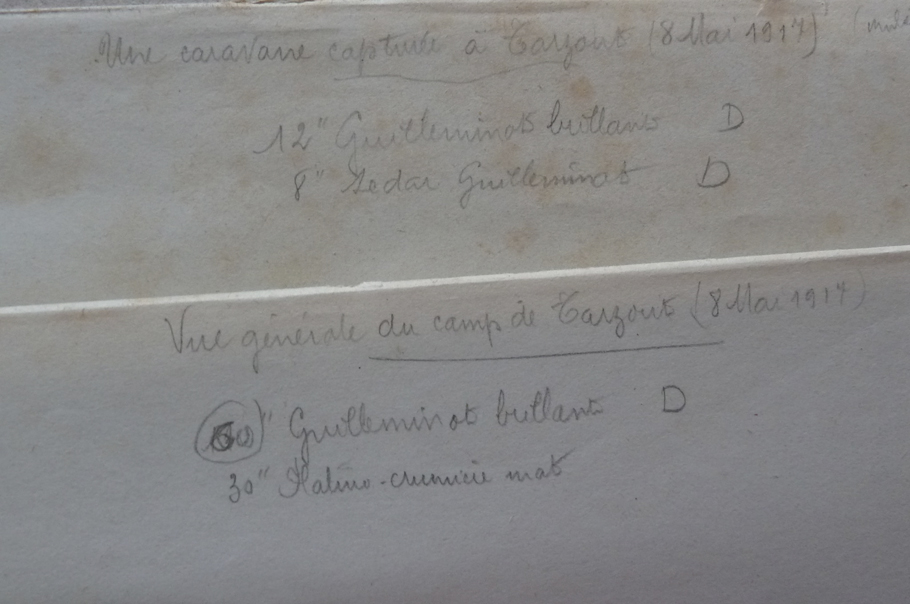 Une caravane capturée à Tarzout (8 Mai 1917)
12" Guilleminot brillant D
8" Guilleminot D
Vue générale du camp de Tarzout (8 Mai 1917)
60" Guilleminot brillant D
30" mat